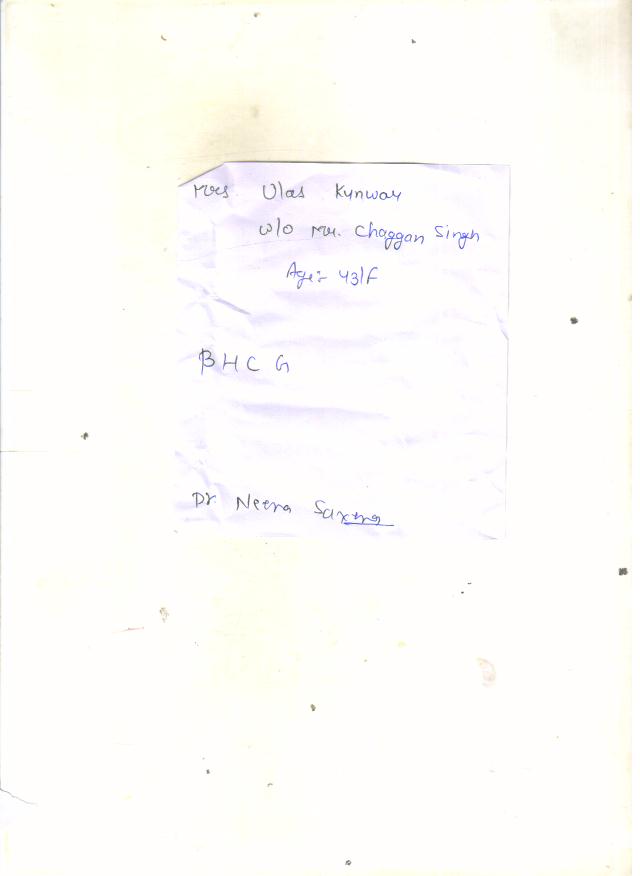 Mrs Ulas Kunwar
w/o Mr. Chaggan Singh
Age:- 43/F
βHCG
Dr. Neera Saxena